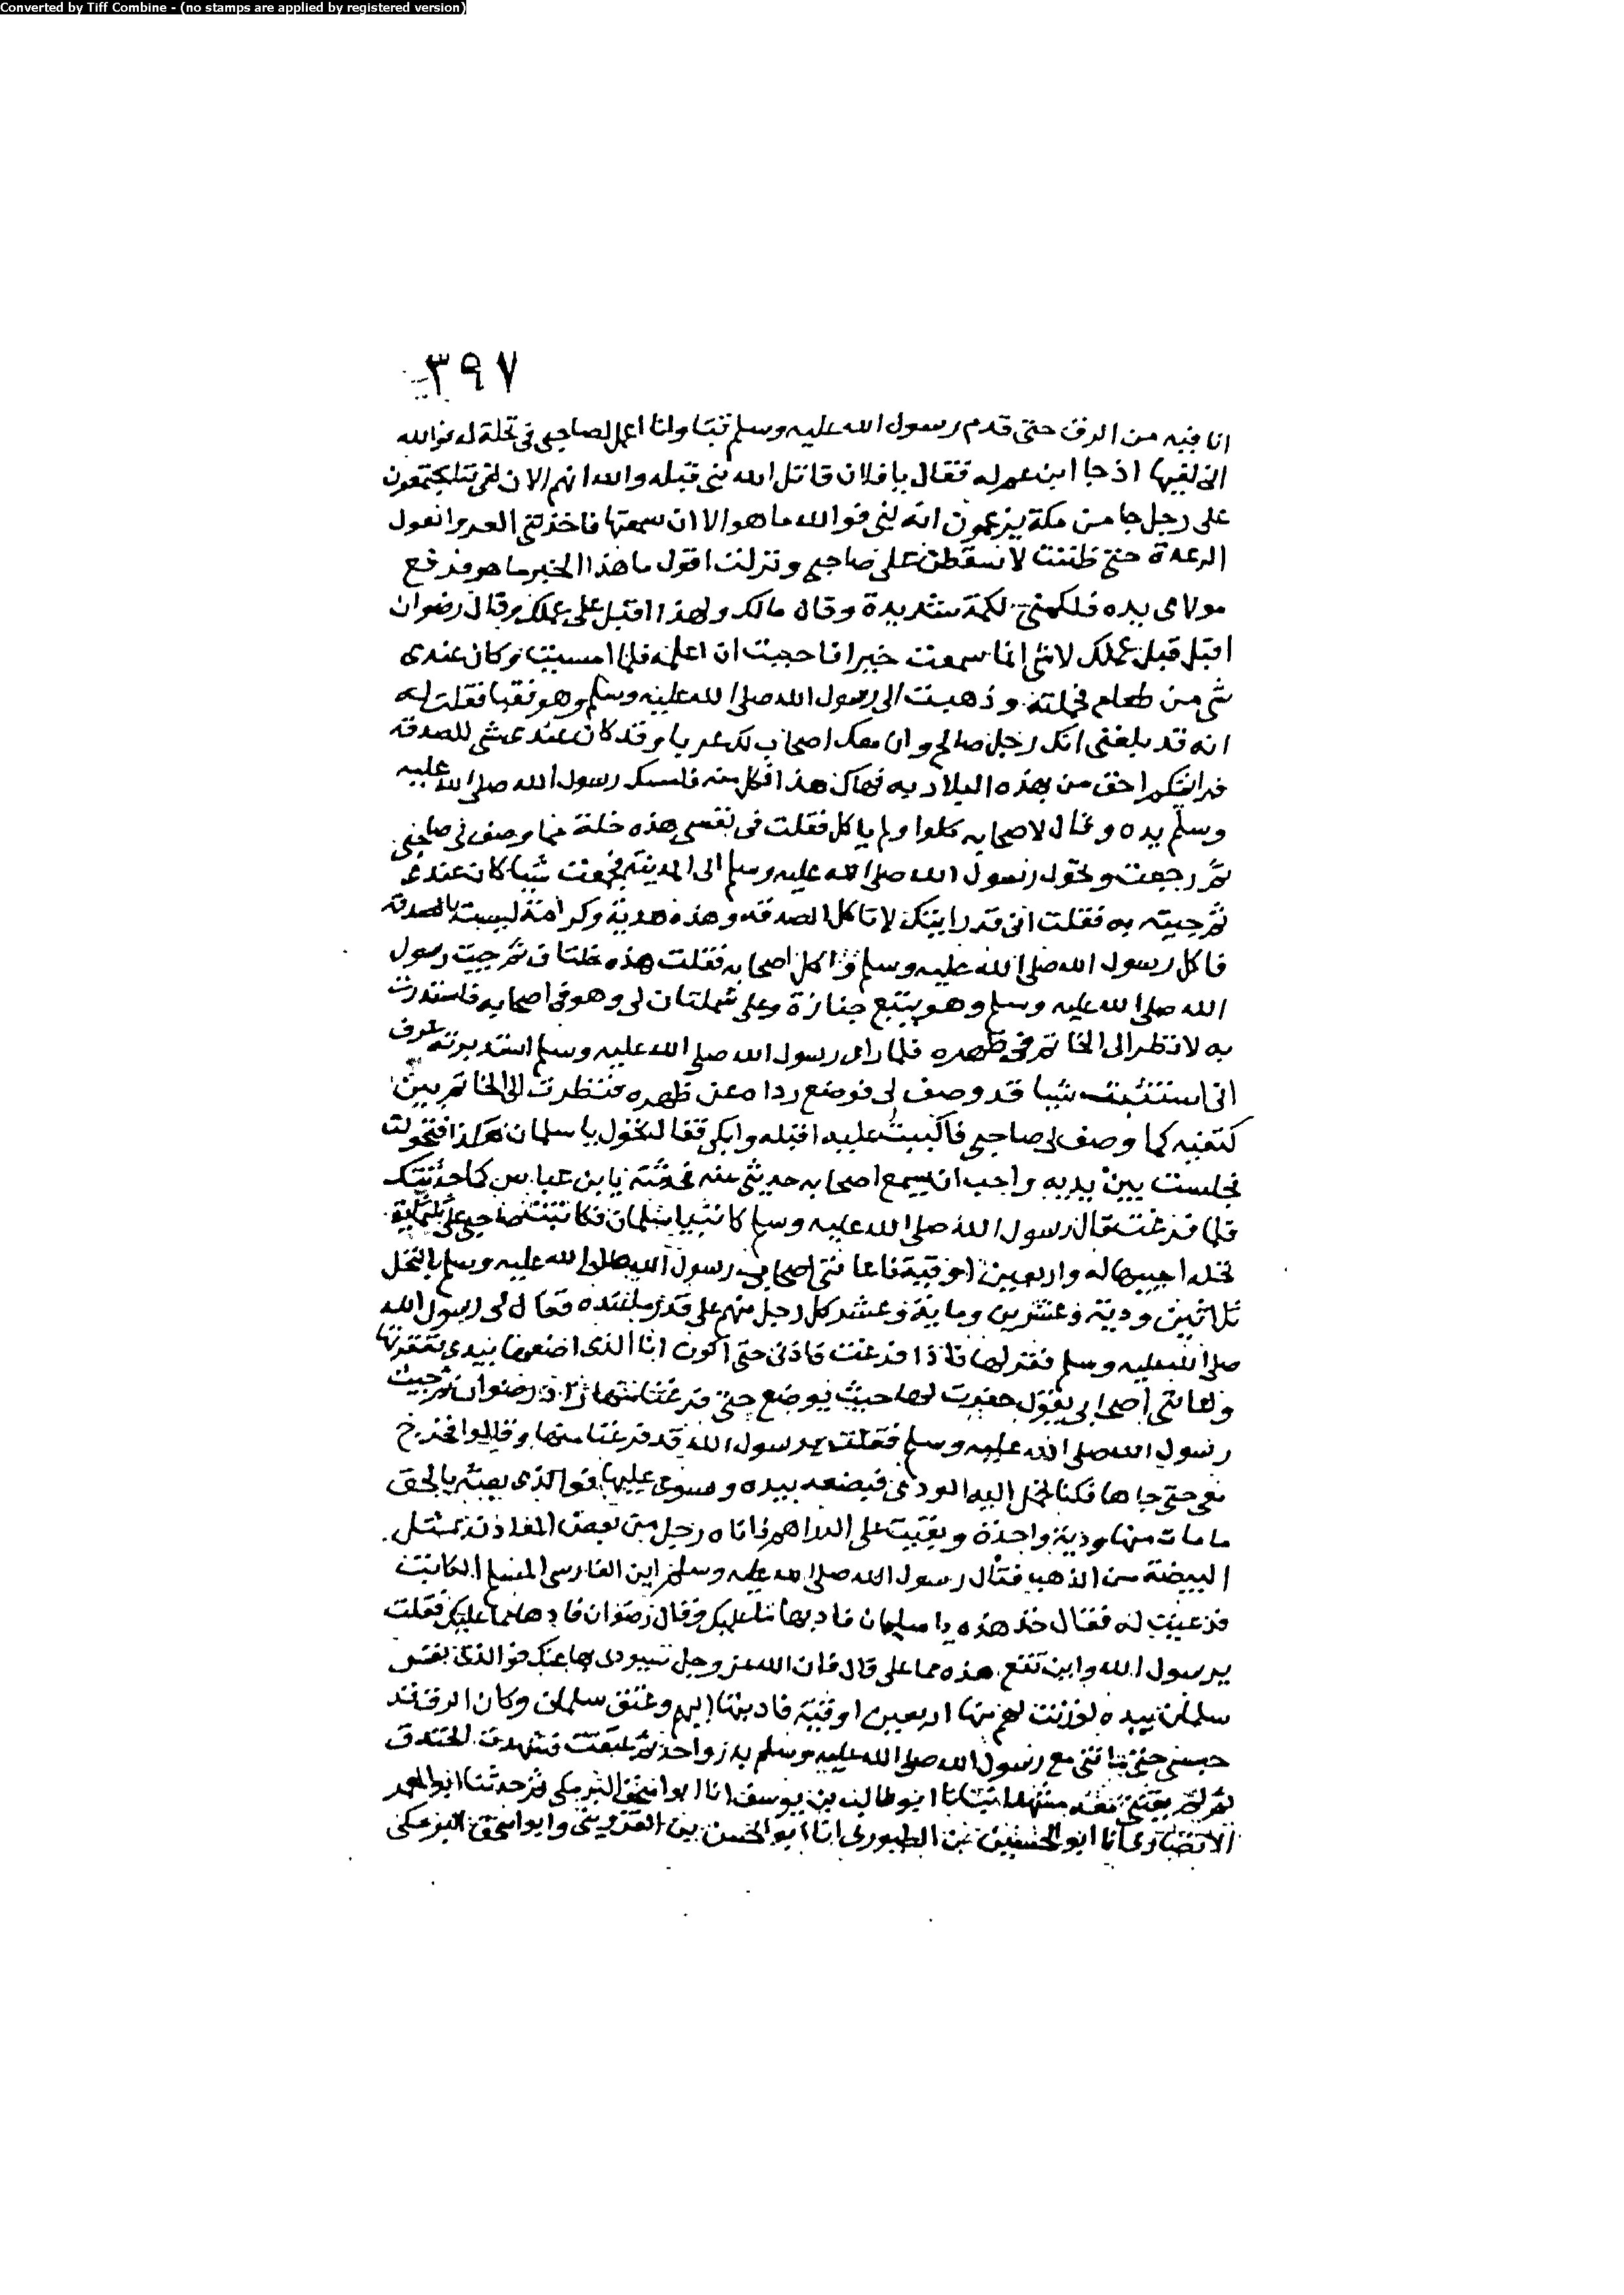 Converted by Tiff Combine - (no stamps are applied by registered version)
٣٩٧
انا فيه من الرق حتى قدم رسول الله عليه وسلم قبا وانا اعمل لصاحبي في نخلة له فوالله
اني لفيها اذ جا ابن عم له فقال يا فلان قاتل الله بني قيله والله انهم الان لفي مجتمعون
على رجل جا من مكة يزعمون انه نبي فوالله ما هو الا ان سمعتها فاخذتني العدوا تقول
الرعدة حتى ظننت لاسقطن على صاحبي ونزلت اقول ما هذا الخبر ما هو فرفع
مولاى يده فلكمني لكمة شديدة وقال مالك ولهذا اقبل على عملك وقال رضوان
اقبل قبل عملك لاشي انما سمعت خبرا فاحببت ان اعلمه فلما امسيت وكان عندى
شي من طعام فحملته وذهبت الى رسول الله صلى الله عليه وسلم وهو بقبا فقلت له
انه قد بلغني انك رجل صالح وان معك اصحاب لك غربا وقد كان عندي شي للصدقة
فرايتكم احق من بهذه البلاد به فهاك هذا فكل منه فامسك رسول الله صلى الله عليه
وسلم يده وقال لاصحابه كلوا ولم ياكل فقلت في نفسي هذه خلة مما وصف لي صاحبي
ثم رجعت وتحول رسول الله صلى الله عليه وسلم الى المدينة فجمعت شيا كان عندى
ثم جيته به فقلت اني قد رايتك لا تاكل الصدقه وهذه هدية وكرامة ليست بالصدقة
فاكل رسول الله صلى الله عليه وسلم واكل اصحابه فقلت هذه خلتان ثم جيت رسول
الله صلى الله عليه وسلم وهو يتبع جنازة وعلي شملتان لي وهو في اصحابه فاستدرت
به لانظر الى الخاتم في ظهره فلما راى رسول الله صلى الله عليه وسلم استدبرته عرف
اني استثبت شيا قد وصف لي فوضع رداه عن ظهره فنظرت الى الخاتم بين
كتفيه كما وصف لي صاحبي فاكببت عليه اقبله وابكي فقال تحول يا سلمان هكذا فتحولت
فجلست بين يديه واحب ان يسمع اصحابه حديثي عنه فحدثته يا بن عباس كما حدثتك
فلما فرغت قال رسول الله صلى الله عليه وسلم كاتب يا سلمان فكاتبت صاحبي على ثلثماية
نخله احييها له واربعين اوقية فاعانني اصحاب رسول الله صلى الله عليه وسلم بالنخل
ثلاثين ودية وعشرين وماية وعشر كل رجل منهم على قدر ما عنده فقال لي رسول الله
صلى الله عليه وسلم فقر لها فاذا فرغت فاذني حتى اكون انا الذى اضعها بيدى ففقرتها
واعانني اصحابي يقول حفرت لها حيث توضع حتى فرغنا منها زاد رضوان ثم جيت
رسول الله صلى الله عليه وسلم فقلت يرسول الله قد فرغنا منها وقالوا فخرج
معي حتى جاها فكنا نحمل اليه الودى فيضعه بيده ويسوى عليها فوالذى بعثه بالحق
ما مات منها ودية واحدة وبقيت علي الدراهم فاتاه رجل من بعض المعادن بمثل
البيضة من الذهب فقال رسول الله صلى الله عليه وسلم اين الفارسي المسلم المكاتب
فدعيت له فقال خذ هذه يا سلمان فادها مما عليك وقال رضوان فادها مما عليك فقلت
يرسول الله واين تقع هذه مما علي قال فان الله عز وجل سيودى بها عنك فوالذى نفس
سلمان بيده لوزنت لهم منها اربعين اوقية فاديتها اليهم وعتق سلمان وكان الرق قد
حبسني حتى فاتني مع رسول الله صلى الله عليه وسلم بدر واحد ثم عتقت فشهدت الخندق
ثم لم يفتني معه مشهد انبانا ابو طالب بن يوسف انا ابو اسحق البرمكي ثم حدثنا ابو المعمر
الانصارى انا ابو الحسين بن الطيورى انا ابو الحسن بن القزويني وابو اسحق البرمكي